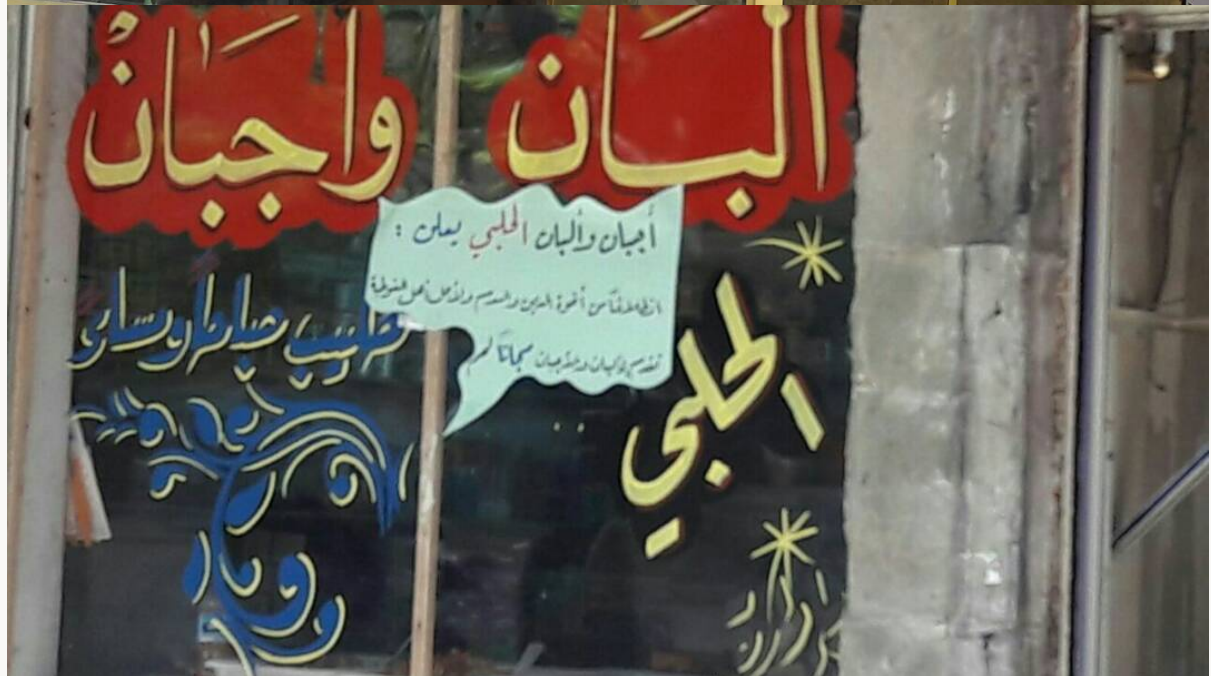 ألبان وأجبان
أجبان وألبان الحلبي يعلن :
انطلاقاً من أخوة الدين والدم ولأجل أهل الغوطة
نقدم الألبان والأجبان مجاناً لهم
الحلبي